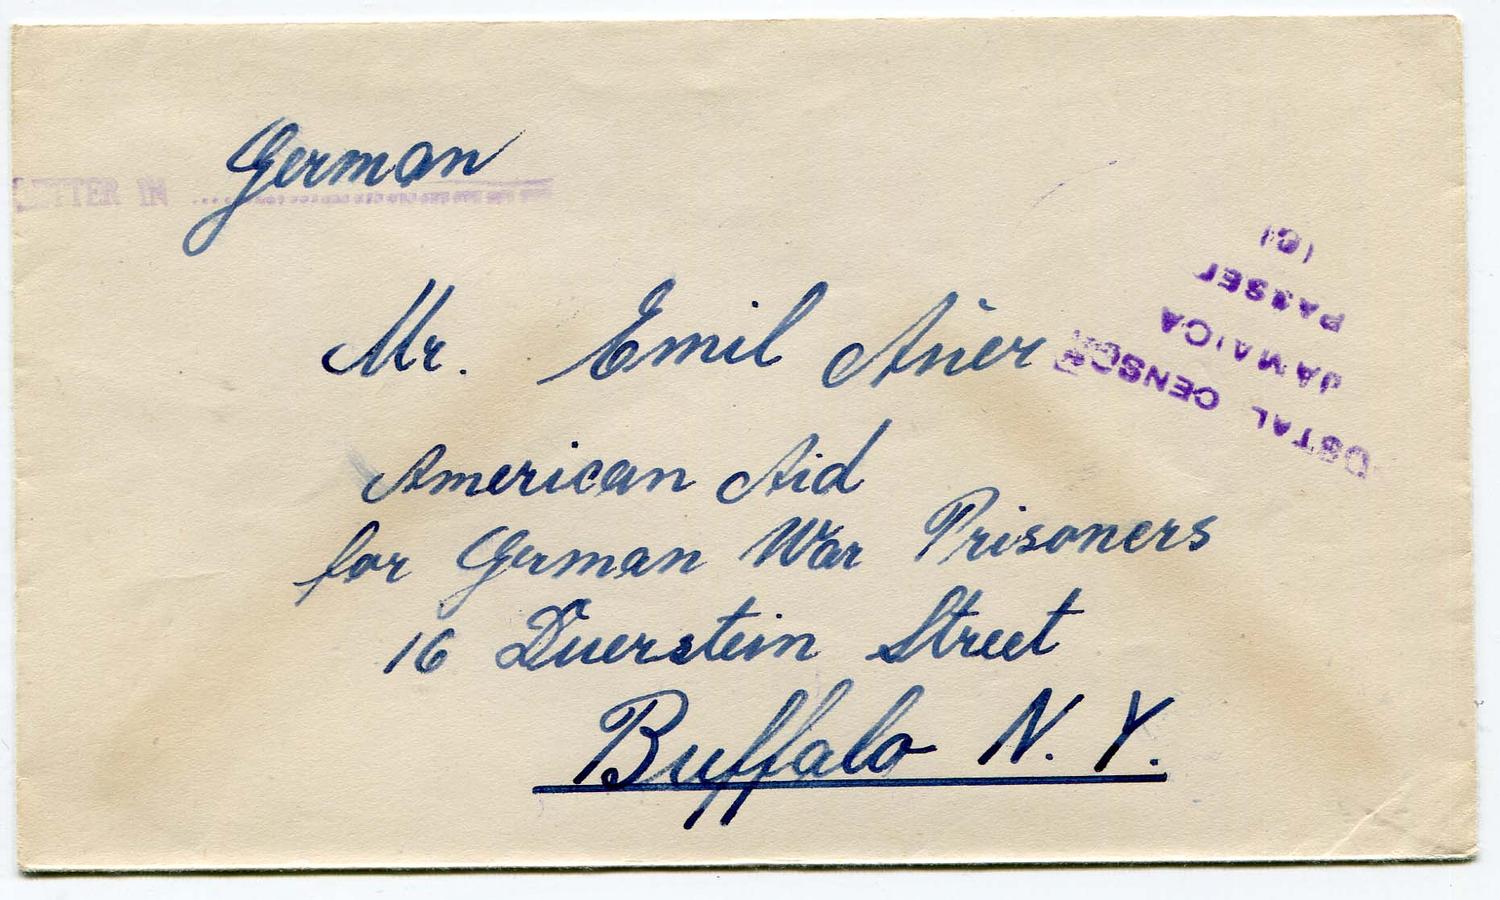 German
LETTER IN
Mr. Emil Auer
American Aid
for German War Prisoners
16 Duerstein Street
Buffalo N. Y.
POSTAL CENSOR
JAMAICA
PASSED